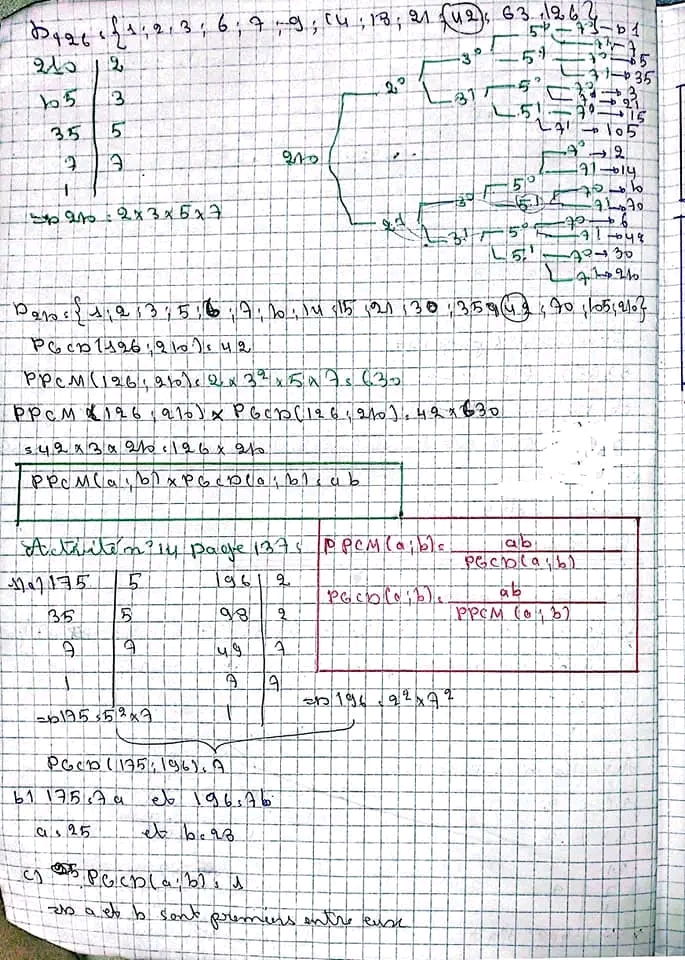 D126 = {1 ; 2 ; 3 ; 6 ; 7 ; 9 ; 14 ; 18 ; 21 ; 42 ; 63 ; 126}
210 | 2
105 | 3
35 | 5
7 | 7
1
=> 210 = 2 x 3 x 5 x 7
210
2⁰ 3⁰ 5⁰ 7⁰ → 1
7¹ → 7
5¹ 7⁰ → 5
7¹ → 35
3¹ 5⁰ 7⁰ → 3
7¹ → 21
5¹ 7⁰ → 15
7¹ → 105
2¹ 3⁰ 5⁰ 7⁰ → 2
7¹ → 14
5¹ 7⁰ → 10
7¹ → 70
3¹ 5⁰ 7⁰ → 6
7¹ → 42
5¹ 7⁰ → 30
7¹ → 210
D210 = {1 ; 2 ; 3 ; 5 ; 6 ; 7 ; 10 ; 14 ; 15 ; 21 ; 30 ; 35 ; 42 ; 70 ; 105 ; 210}
PGCD(126 ; 210) = 42
PPCM(126 ; 210) = 2 x 3² x 5 x 7 = 630
PPCM (126 ; 210) x PGCD(126 ; 210) = 42 x 630
= 42 x 3 x 210 = 126 x 210
PPCM(a ; b) x PGCD(a ; b) = ab
Activité n° 14 page 137 :
PPCM(a ; b) = ab / PGCD(a ; b)
PGCD(a ; b) = ab / PPCM (a ; b)
1) a) 175 | 5 196 | 2
35 | 5 98 | 2
7 | 7 49 | 7
1 7 | 7
=> 175 = 5² x 7 1 => 196 = 2² x 7²
PGCD(175 ; 196) = 7
b) 175 = 7a et 196 = 7b
a = 25 et b = 28
c) PGCD(a ; b) = 1
=> a et b sont premiers entre eux